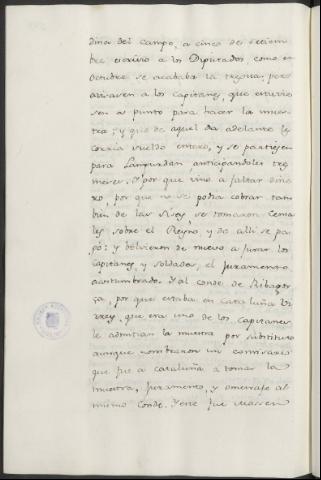 dina del campo, a cinco de setiem
bre escrivio a los Diputados, como en
Octubre se acababa la tregua, para
avisasen a los Capitanes, que estuvies
sen a punto para hacer la mues
tra; y que de aquel dia adelante les
corria sueldo entero, y se partiesen
para anticipandoles tres
meses. Y por que vino a faltar dine
ro, por que no se podia cobrar tam
bien de las Sisas, se tomaron Censa
les sobre el Reyno, y de alli se pa
gó: y bolvieron de nuevo a jurar los
capitanes, y soldados, el juramento
acostumbrado. Y al conde de Ribagor
za, por que estaba en Cataluña Vi
rrey, que era uno de los capitanes,
le admitian la muestra por substituto
aunque nombraron un comisario
que fue a cataluña a tomar la
muestra, juramento, y omenaje al
mismo Conde. Y este fue Mossen